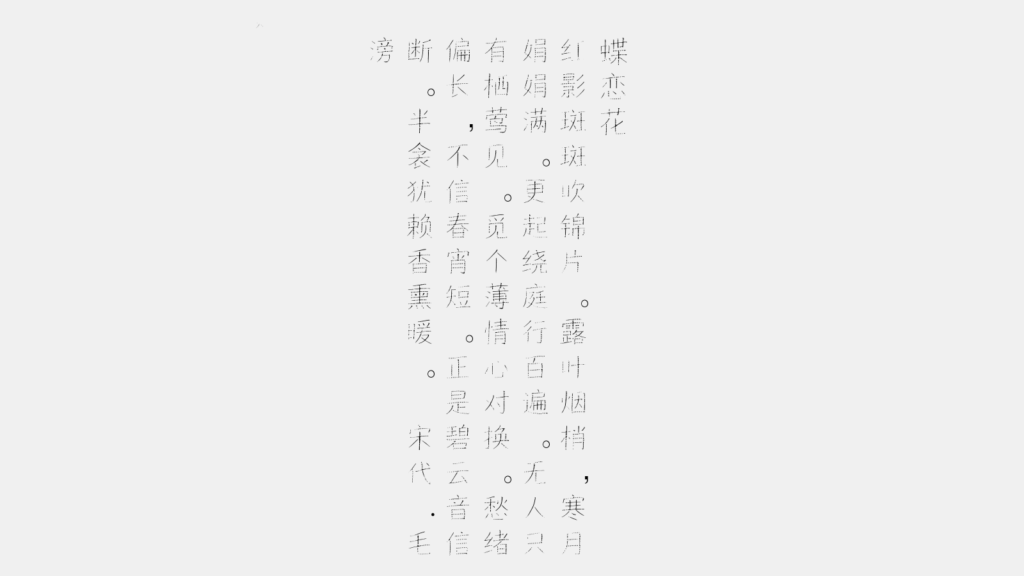 蝶恋花
红影斑斑吹锦片。露叶烟梢,寒月
娟娟满。更起绕庭行百遍。无人只
有栖莺见。觅个薄情心对换。愁绪
偏长,不信春宵短。正是碧云音信
断。半衾犹赖香熏暖。 宋代.毛
滂